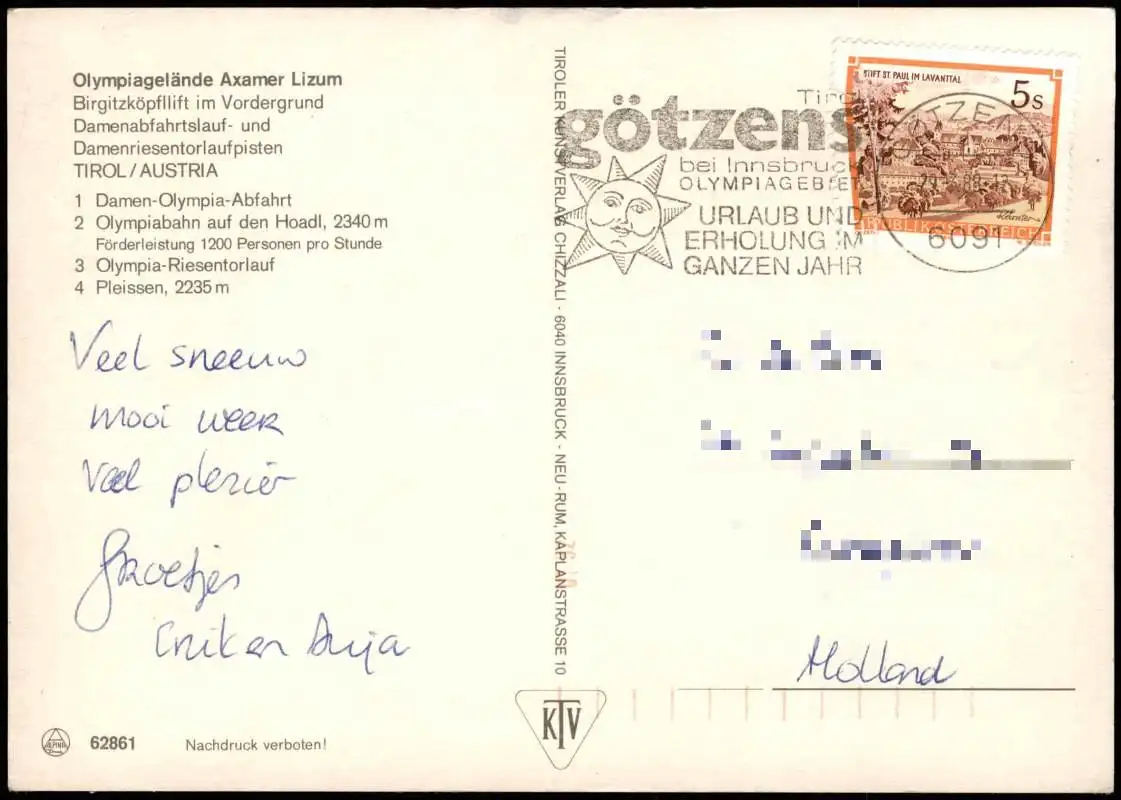 Olympiagelände Axamer Lizum
Birgitzköpfllift im Vordergrund
Damenabfahrtslauf- und
Damenriesentorlaufpisten
TIROL/AUSTRIA
1 Damen-Olympia-Abfahrt
2 Olympiabahn auf den Hoadl, 2340 m
Förderleistung 1200 Personen pro Stunde
3 Olympia-Riesentorlauf
4 Pleissen, 2235 m
Veel sneeuw
mooi weer
Veel plezier
Groetjes
en Anja
62861
Nachdruck verboten!
TIROLER KUNSTVERLAG CHIZZALI · 6040 INNSBRUCK - NEU-RUM, KAPLANSTRASSE 10
KTV
Tirol
götzens
bei Innsbruck
OLYMPIAGEBIET
URLAUB UND
ERHOLUNG IM
GANZEN JAHR
STIFT ST. PAUL IM LAVANTTAL
5s
Kärnten
REPUBLIK ÖSTERREICH
6091
Holland